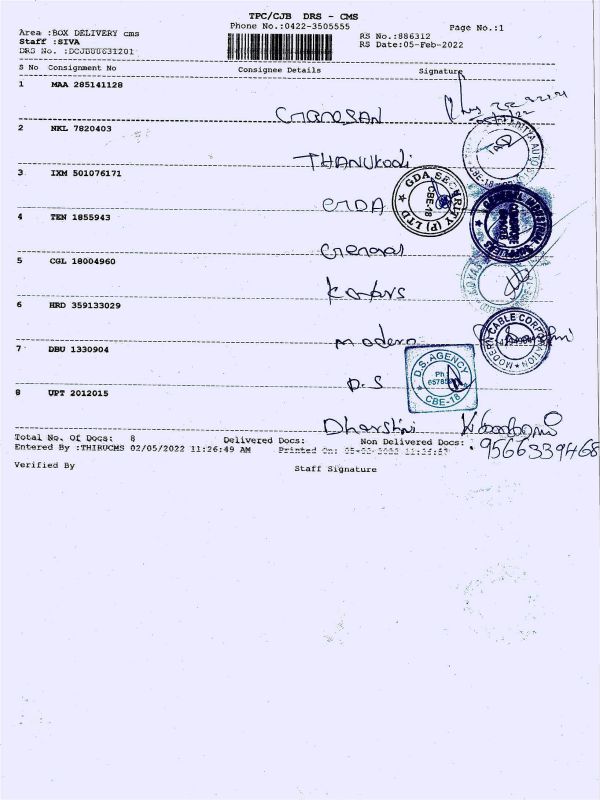 TPC/CJB DRS - CMS
Phone No.:0422-3505555
Page No.:1
Area :BOX DELIVERY cms
RS No.:886312
Staff :SIVA
RS Date:05-Feb-2022
DRS No. :DCJB00631201
S No Consignment No Consignee Details Signature
1 MAA 285141128
GANESAN
2 NKL 7820403
THANUKODI
3 IXM 501076171
GDA
GDA SECURITY (P) LTD
CBE-18
4 TEN 1855943
General
5 CGL 18004960
6 HRD 359133029
Modern
MODERN CABLE CORPORATION
7 DBU 1330904
D.S
D.S. AGENCY
Ph
CBE-18
8 UPT 2012015
Dharshni
9566339468
Total No. Of Docs: 8 Delivered Docs: Non Delivered Docs:
Entered By :THIRUCMS 02/05/2022 11:26:49 AM Printed On:
Verified By Staff Signature